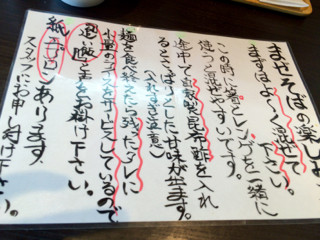 まぜそばの楽しみ
まずはよ〜く混ぜて
下さい。
この時、お箸とレンゲを一緒に
使うと混ぜやすいです。
途中で自家製昆布酢を入れ
るとさっぱりとした甘味が出ます。
(入れすぎ注意)
麺を食べ終えたら残ったタレに
小盛のライスをサービスしているので
お申し付け下さい。
紙エプロンあります。
スタッフにお申し付け下さい。